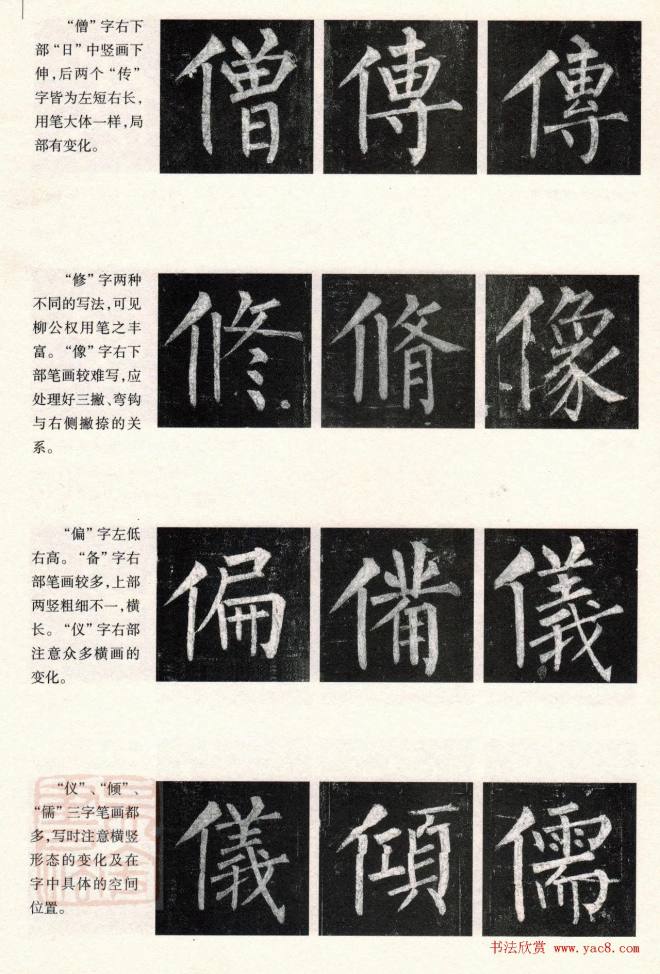 “僧”字右下
部“日”中竖画下
伸,后两个“传”
字皆为左短右长,
用笔大体一样,局
部有变化。
僧 傳 傳
“修”字两种
不同的写法,可见
柳公权用笔之丰
富。“像”字右下
部笔画较难写,应
处理好三撇、弯钩
与右侧撇捺的关
系。
修 脩 像
“偏”字左低
右高。“备”字右
部笔画较多,上部
两竖粗细不一,横
长。“仪”字右部
注意众多横画的
变化。
偏 備 儀
“仪”、“倾”、
“儒”三字笔画都
多,写时注意横竖
形态的变化及在
字中具体的空间
位置。
儀 傾 儒
书法欣赏 www.yac8.com